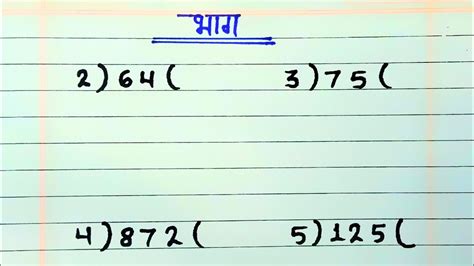 भाग
2)64( 3)75(
4)872( 5)125(